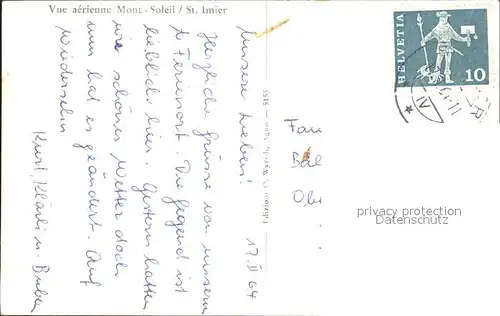 Vue aérienne Mont-Soleil / St. Imier
17. II 64
Unsere Lieben!
Herzliche Grüsse von unserem
Ferienort. Die Gegend ist
lieblich hier. Gestern hatten
wir schönes Wetter doch
nun hat es geändert. Auf
Wiedersehn
Kurt, Klärli u. Buben
5155
HELVETIA
10
Fam
Ob
privacy protection
AnsichtskartenVersand.com